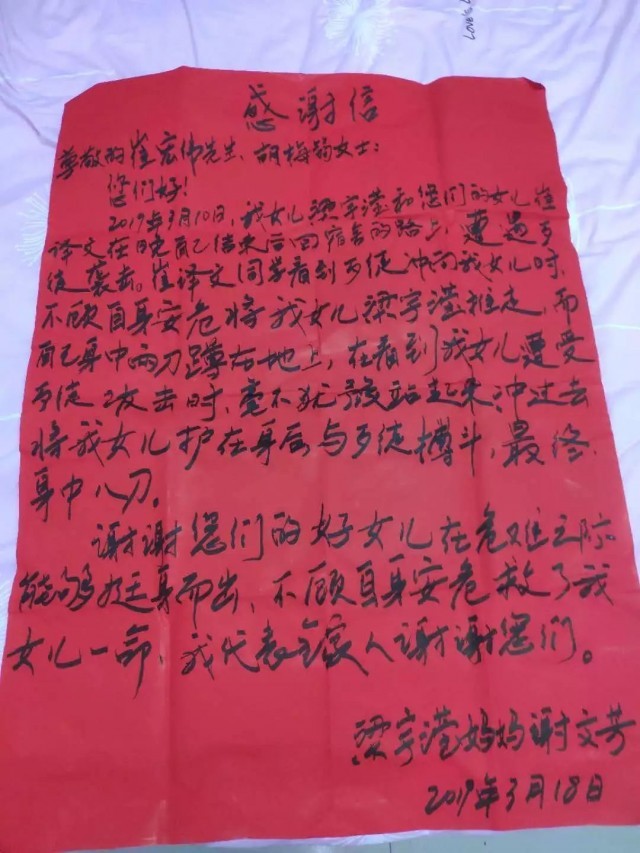 Love's L
感谢信
尊敬的崔宏伟先生、胡梅菊女士:
您们好!
2019年3月10日,我女儿梁宇滢和您们的女儿崔
译文在晚自习结束后回宿舍的路上,遭遇歹
徒袭击。崔译文同学看到歹徒冲向我女儿时,
不顾自身安危将我女儿梁宇滢推走,而
自己身中两刀蹲在地上,在看到我女儿遭受
歹徒攻击时,毫不犹豫站起来冲过去
将我女儿护在身后与歹徒搏斗,最终
身中八刀。
谢谢您们的好女儿在危难之际
能够挺身而出、不顾自身安危救了我
女儿一命,我代表全家人谢谢您们。
梁宇滢妈妈谢文芳
2019年3月18日